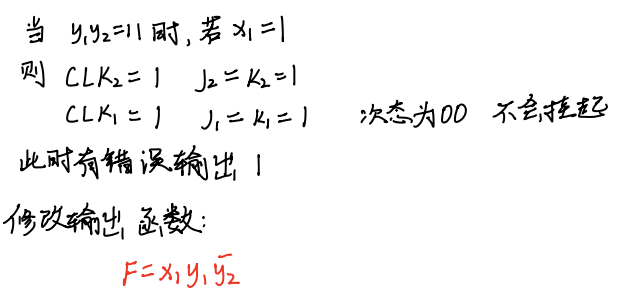 当 y₁y₂=11时,若x₁=1
则 CLK₂=1 J₂=K₂=1
CLK₁=1 J₁=K₁=1 次态为00 不会挂起
此时有错误输出 1
修改输出函数:
F=x₁y₁y̅₂